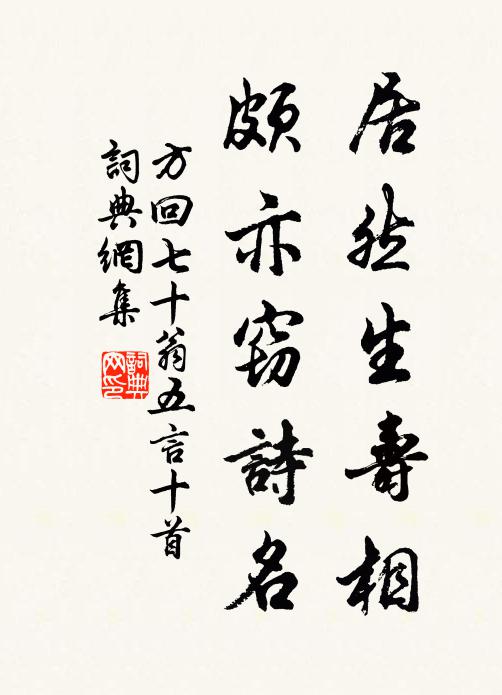 居然生壽相
頗亦窈詩名
方回七十翁五言十首
詞典網集
詞典网印